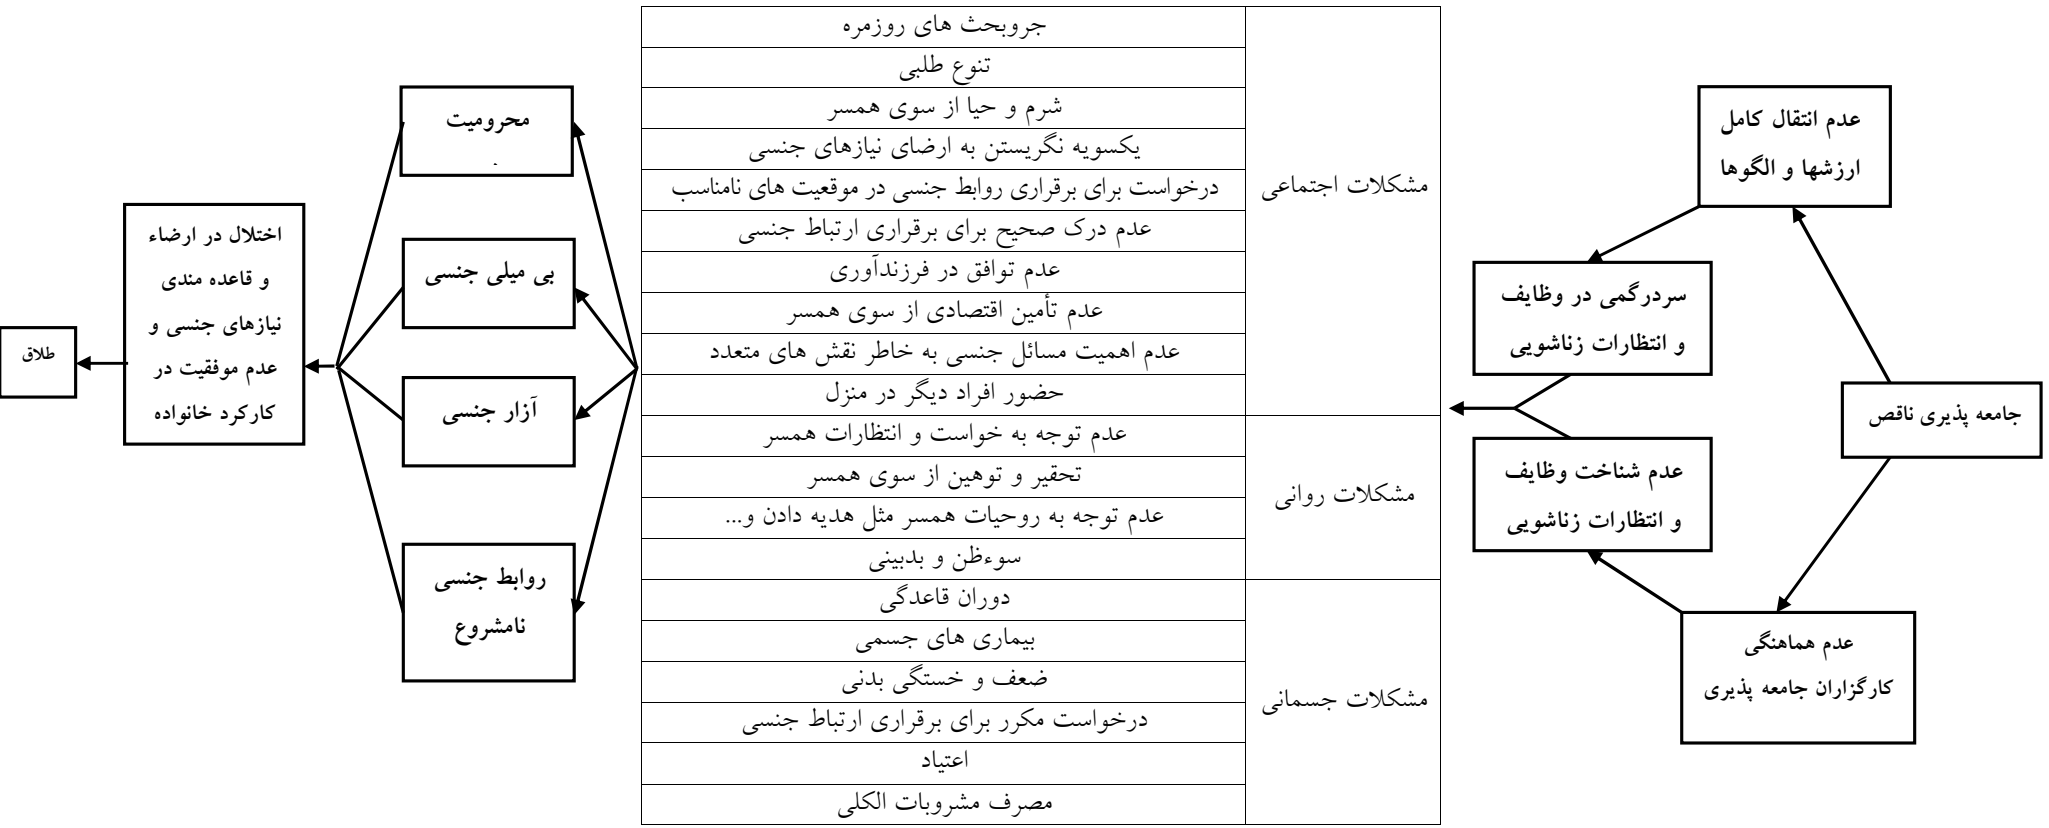 جامعه پذیری ناقص
عدم انتقال کامل
ارزشها و الگوها
سردرگمی در وظایف
و انتظارات زناشویی
عدم شناخت وظایف
و انتظارات زناشویی
عدم هماهنگی
کارگزاران جامعه پذیری
مشکلات اجتماعی
جروبحث های روزمره
تنوع طلبی
شرم و حیا از سوی همسر
یکسویه نگریستن به ارضای نیازهای جنسی
درخواست برای برقراری روابط جنسی در موقعیت های نامناسب
عدم درک صحیح برای برقراری ارتباط جنسی
عدم توافق در فرزندآوری
عدم تأمین اقتصادی از سوی همسر
عدم اهمیت مسائل جنسی به خاطر نقش های متعدد
حضور افراد دیگر در منزل
مشکلات روانی
عدم توجه به خواست و انتظارات همسر
تحقیر و توهین از سوی همسر
عدم توجه به روحیات همسر مثل هدیه دادن و...
سوءظن و بدبینی
مشکلات جسمانی
دوران قاعدگی
بیماری های جسمی
ضعف و خستگی بدنی
درخواست مکرر برای برقراری ارتباط جنسی
اعتیاد
مصرف مشروبات الکلی
محرومیت
بی میلی جنسی
آزار جنسی
روابط جنسی
نامشروع
اختلال در ارضاء
و قاعده مندی
نیازهای جنسی و
عدم موفقیت در
کارکرد خانواده
طلاق